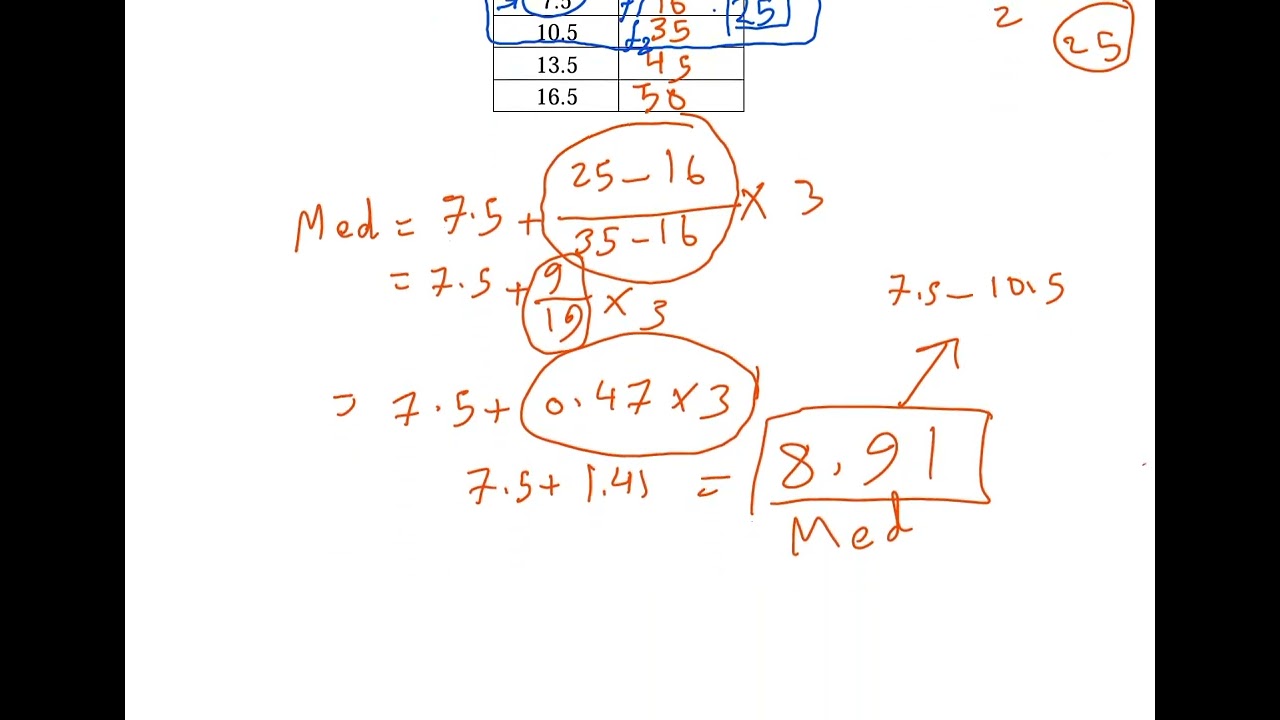 7.5 f1 16 25
10.5 f2 35
13.5 45
16.5 50
2
25
Med = 7.5 + 25-16 / 35-16 × 3
= 7.5 + 9/19 × 3
7.5 - 10.5
= 7.5 + 0.47 × 3
7.5 + 1.41 = 8.91
Med